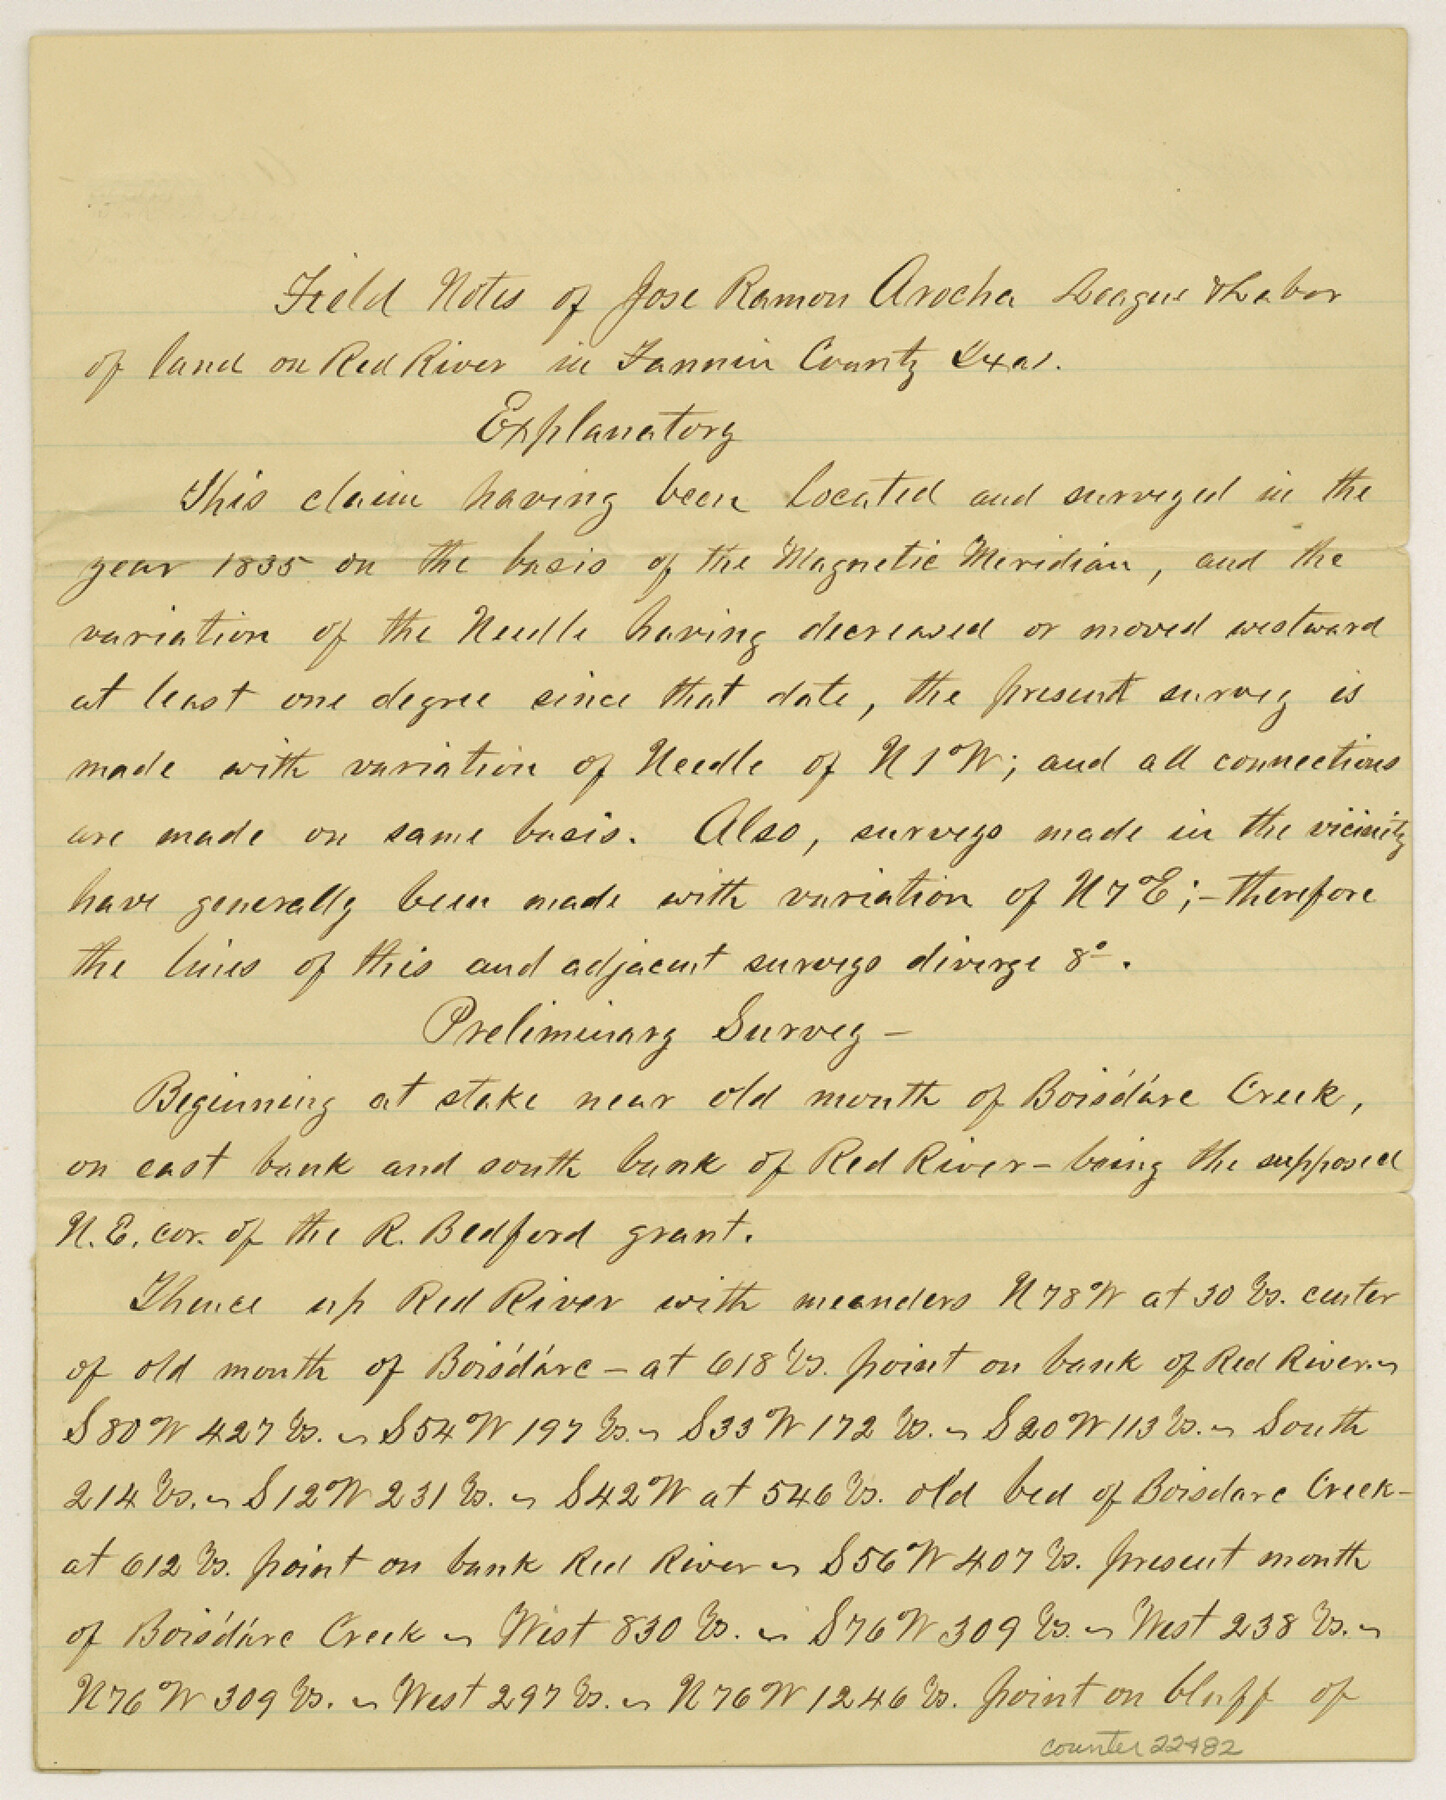 Field Notes of Jose Ramon Arocha League & Labor
of land on Red River in Fannin County Texas.
Explanatory
This claim having been located and surveyed in the
year 1835 on the basis of the Magnetic Meridian, and the
variation of the Needle having decreased or moved westward
at least one degree since that date, the present survey is
made with variation of Needle of N 1° W; and all connections
are made on same basis. Also, surveys made in the vicinity
have generally been made with variation of N 7° E; - therefore
the lines of this and adjacent surveys diverge 8°.
Preliminary Survey -
Beginning at stake near old mouth of Boisd'arc Creek,
on east bank and south bank of Red River - being the supposed
N. E. cor. of the R. Bedford grant.
Thence up Red River with meanders N 78° W at 30 Vs. center
of old mouth of Boisd'arc - at 618 Vs. point on bank of Red River. ~
S 80° W 427 Vs. ~ S 54° W 197 Vs. ~ S 33° W 172 Vs. ~ S 20° W 113 Vs. ~ South
214 Vs. ~ S 12° W 231 Vs. ~ S 42° W at 546 Vs. old bed of Boisdarc Creek -
at 612 Vs. point on bank Red River ~ S 56° W 407 Vs. present mouth
of Boisd'arc Creek ~ West 830 Vs. ~ S 76° W 309 Vs. ~ West 238 Vs. ~
N 76° W 309 Vs. ~ West 297 Vs. ~ N 76° W 1246 Vs. point on bluff of
counter 22482